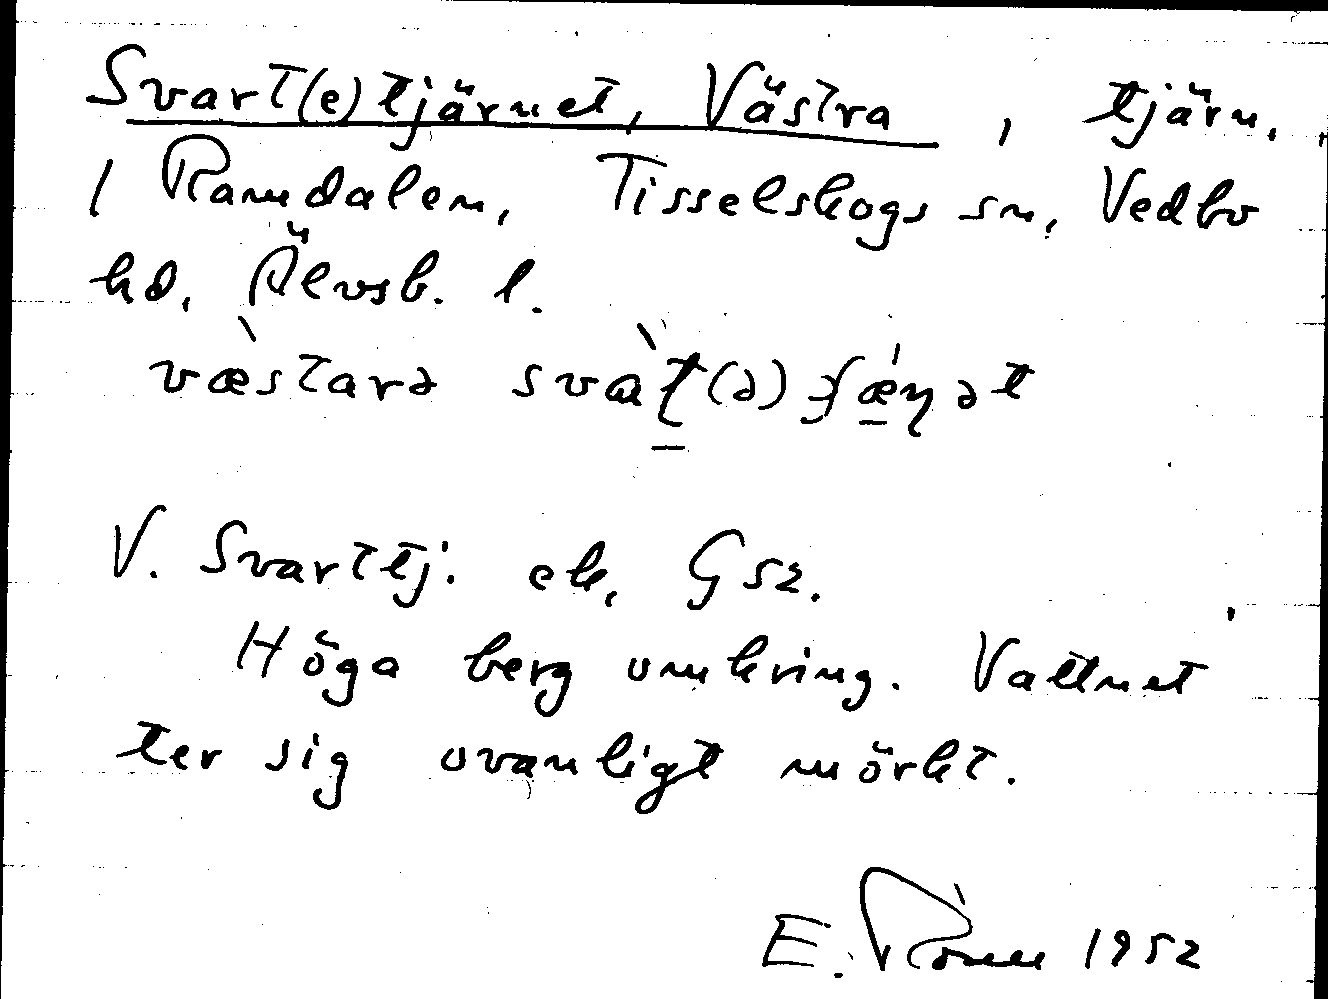 Svart(e)tjärnet, Västra, tjärn,
/ Ramdalen, Tisselskogs sn, Vedbo
hd, Älvsb. l.
V. Svarttj. ek, Gsz.
Höga berg omkring. Vattnet
ter sig ovanligt mörkt.
E. 1952